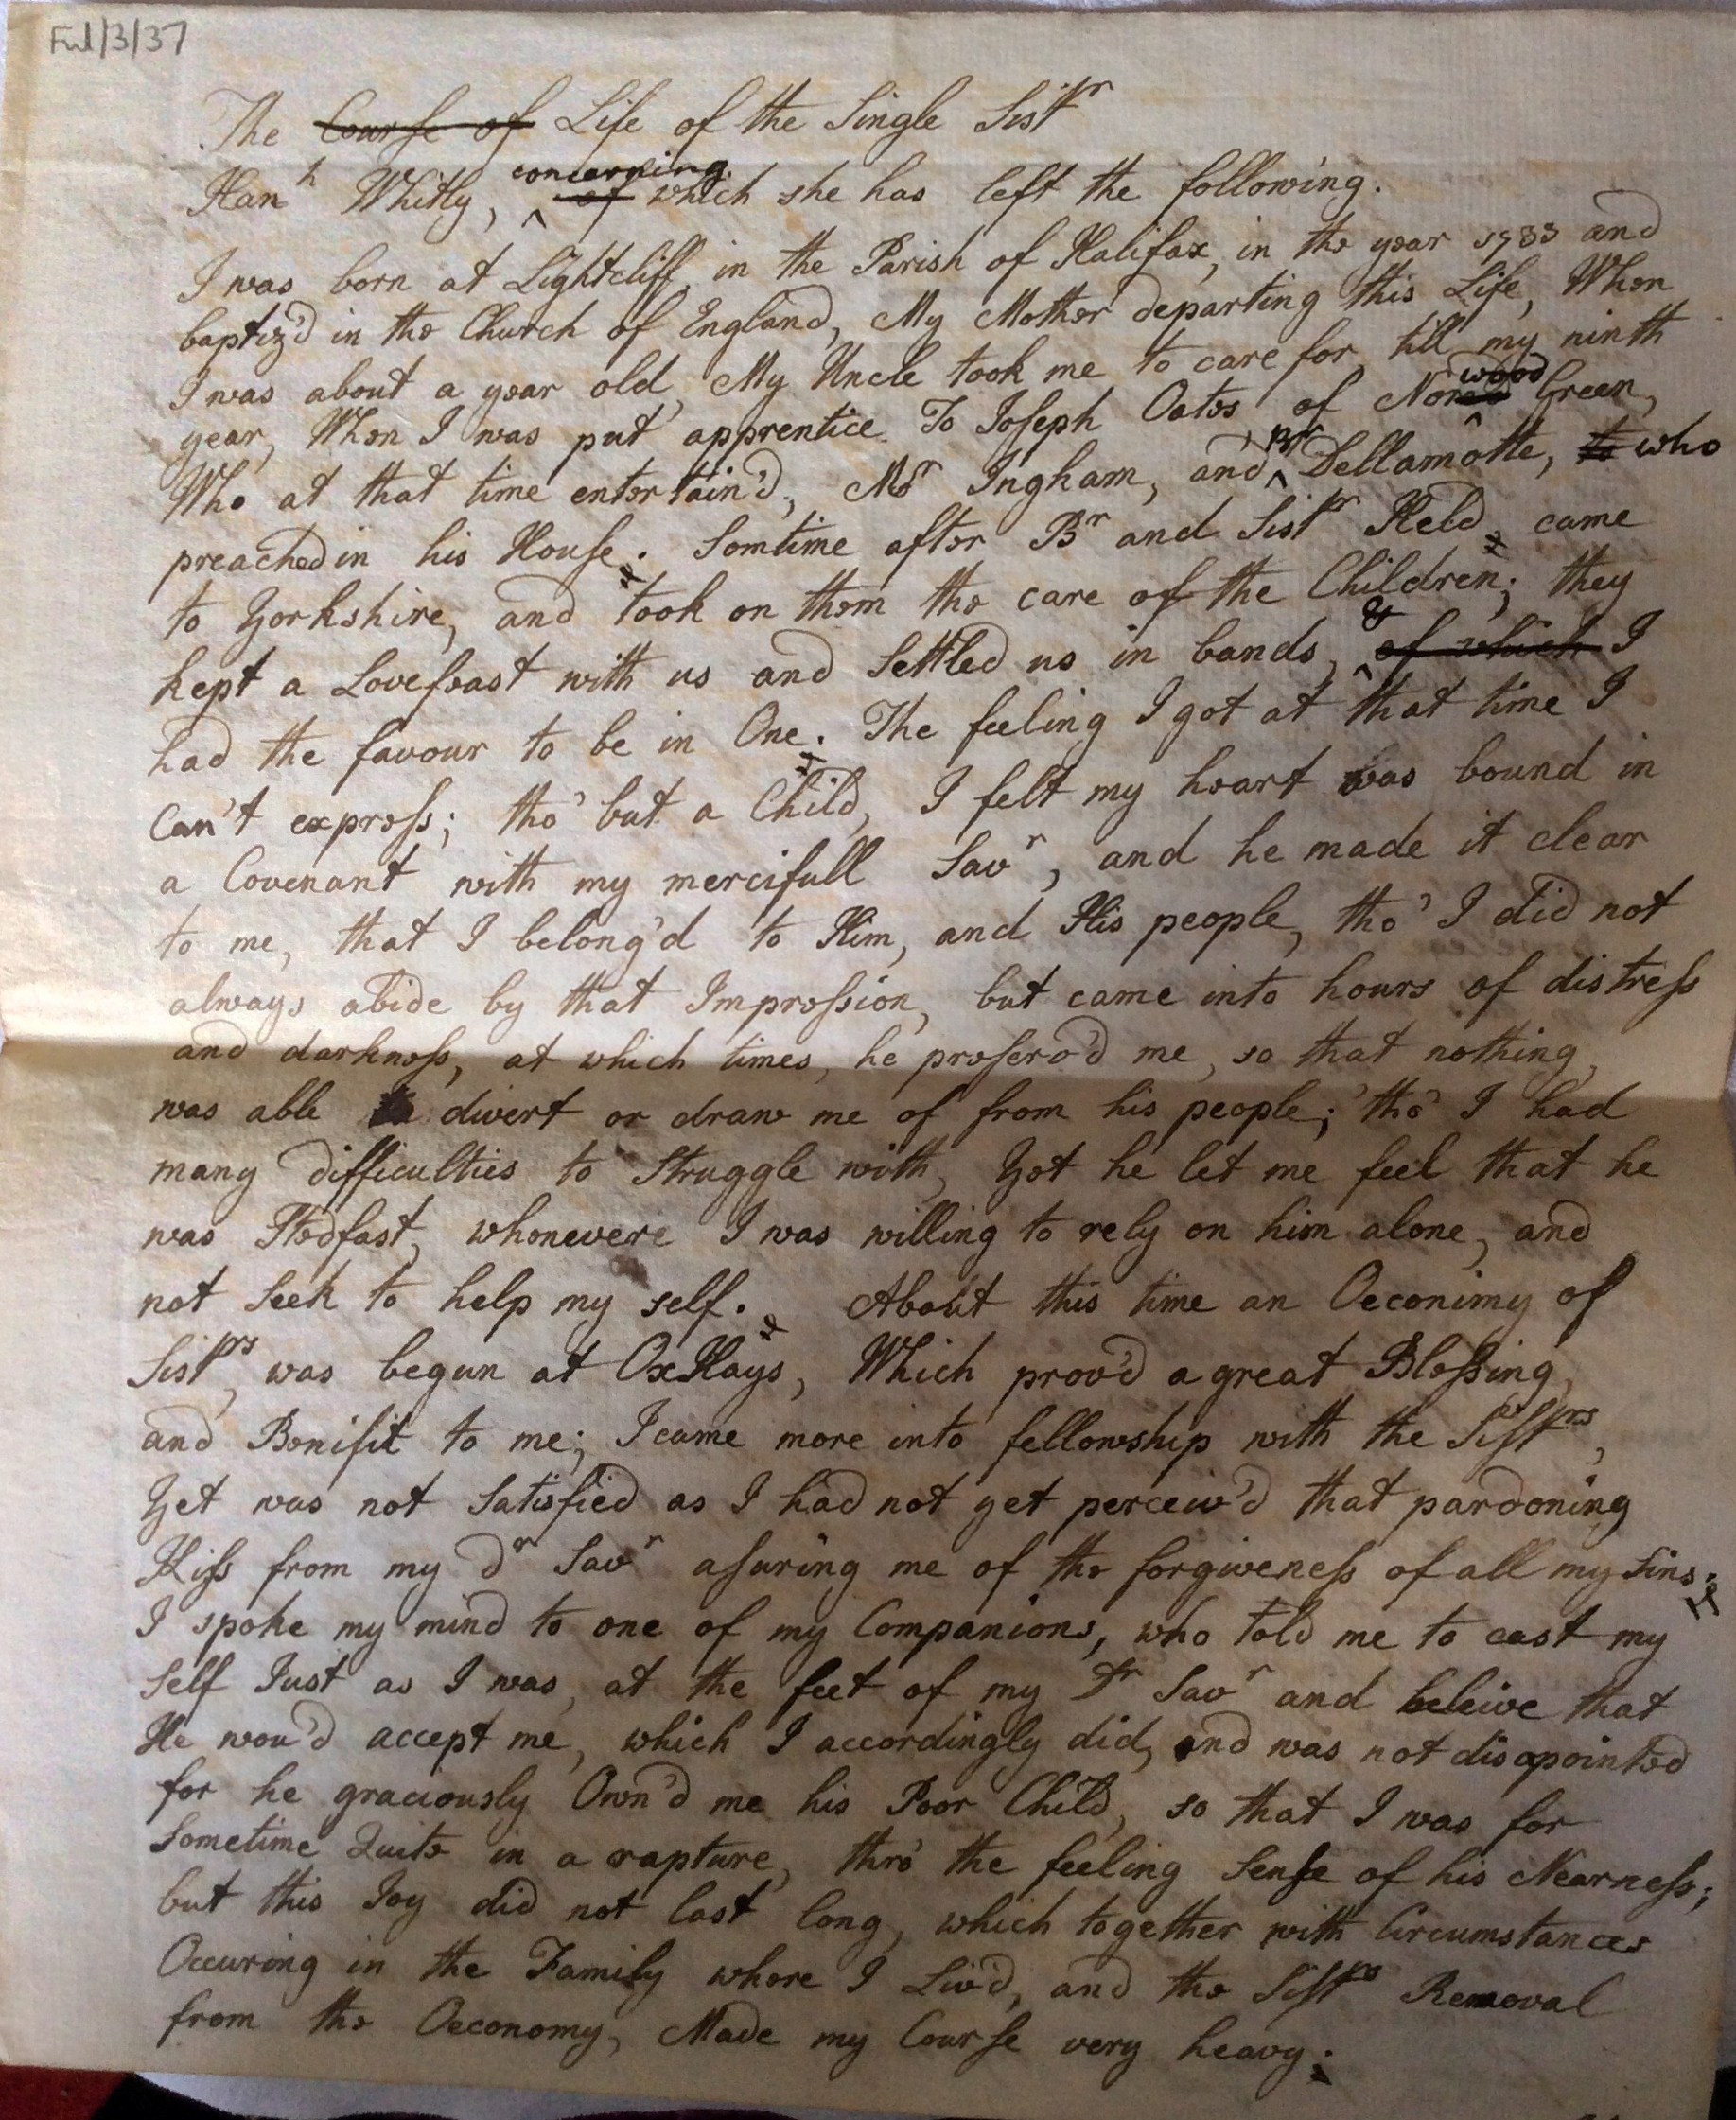 Ful/3/37
The Course of Life of the Single Sistr
Hanh Whitly, concerning of which she has left the following.
I was born at Lightcliff, in the Parish of Halifax, in the year 1733 and
baptiz'd in the Church of England, My Mother departing this Life, When
I was about a year old, My Uncle took me to care for, till my ninth
year, When I was put apprentice To Joseph Oates of Norwood Green,
Who at that time entertain'd, Mr Ingham, and Br Dellamotte, to who
preached in his House. Somtime after Br and Sistr Held, came
to Yorkshire, and took on them the care of the Children; they
kept a Lovefeast with us and Settled us in bands, & of which I
had the favour to be in One. The feeling I got at that time I
Can't express; tho' but a Child, I felt my heart was bound in
a Covenant with my mercifull Savr, and he made it clear
to me, that I belong'd to Him, and His people, tho' I did not
always abide by that Impression, but came into hours of distress
and darkness, at which times, he preserv'd me, so that nothing
was able to divert or draw me of from his people; tho' I had
many difficulties to Struggle with, Yet he let me feel that he
was Stedfast, whenevere I was willing to rely on him alone, and
not Seek to help my self. About this time an Oeconimy of
Sistrs, was begun at OxHays, Which prov'd a great Blessing,
and Benifit to me; I came more into fellowship with the Sistrs,
Yet was not Satisfied as I had not yet perceiv'd that pardoning
Kiss from my dr Savr asuring me of the forgiveness of all my Sins.
I spoke my mind to one of my Companions, who told me to cast my
Self Just as I was, at the feet of my Dr Savr and beleive that
He wou'd accept me, which I accordingly did, and was not disapointed
for he graciously Own'd me his Poor Child, so that I was for
Sometime Quite in a rapture, thro' the feeling Sense of his Nearness;
but this Joy did not last long, which together with Circumstances
Occuring in the Family where I Liv'd, and the Sistrs Removal
from the Oeconomy, Made my Course very heavy;